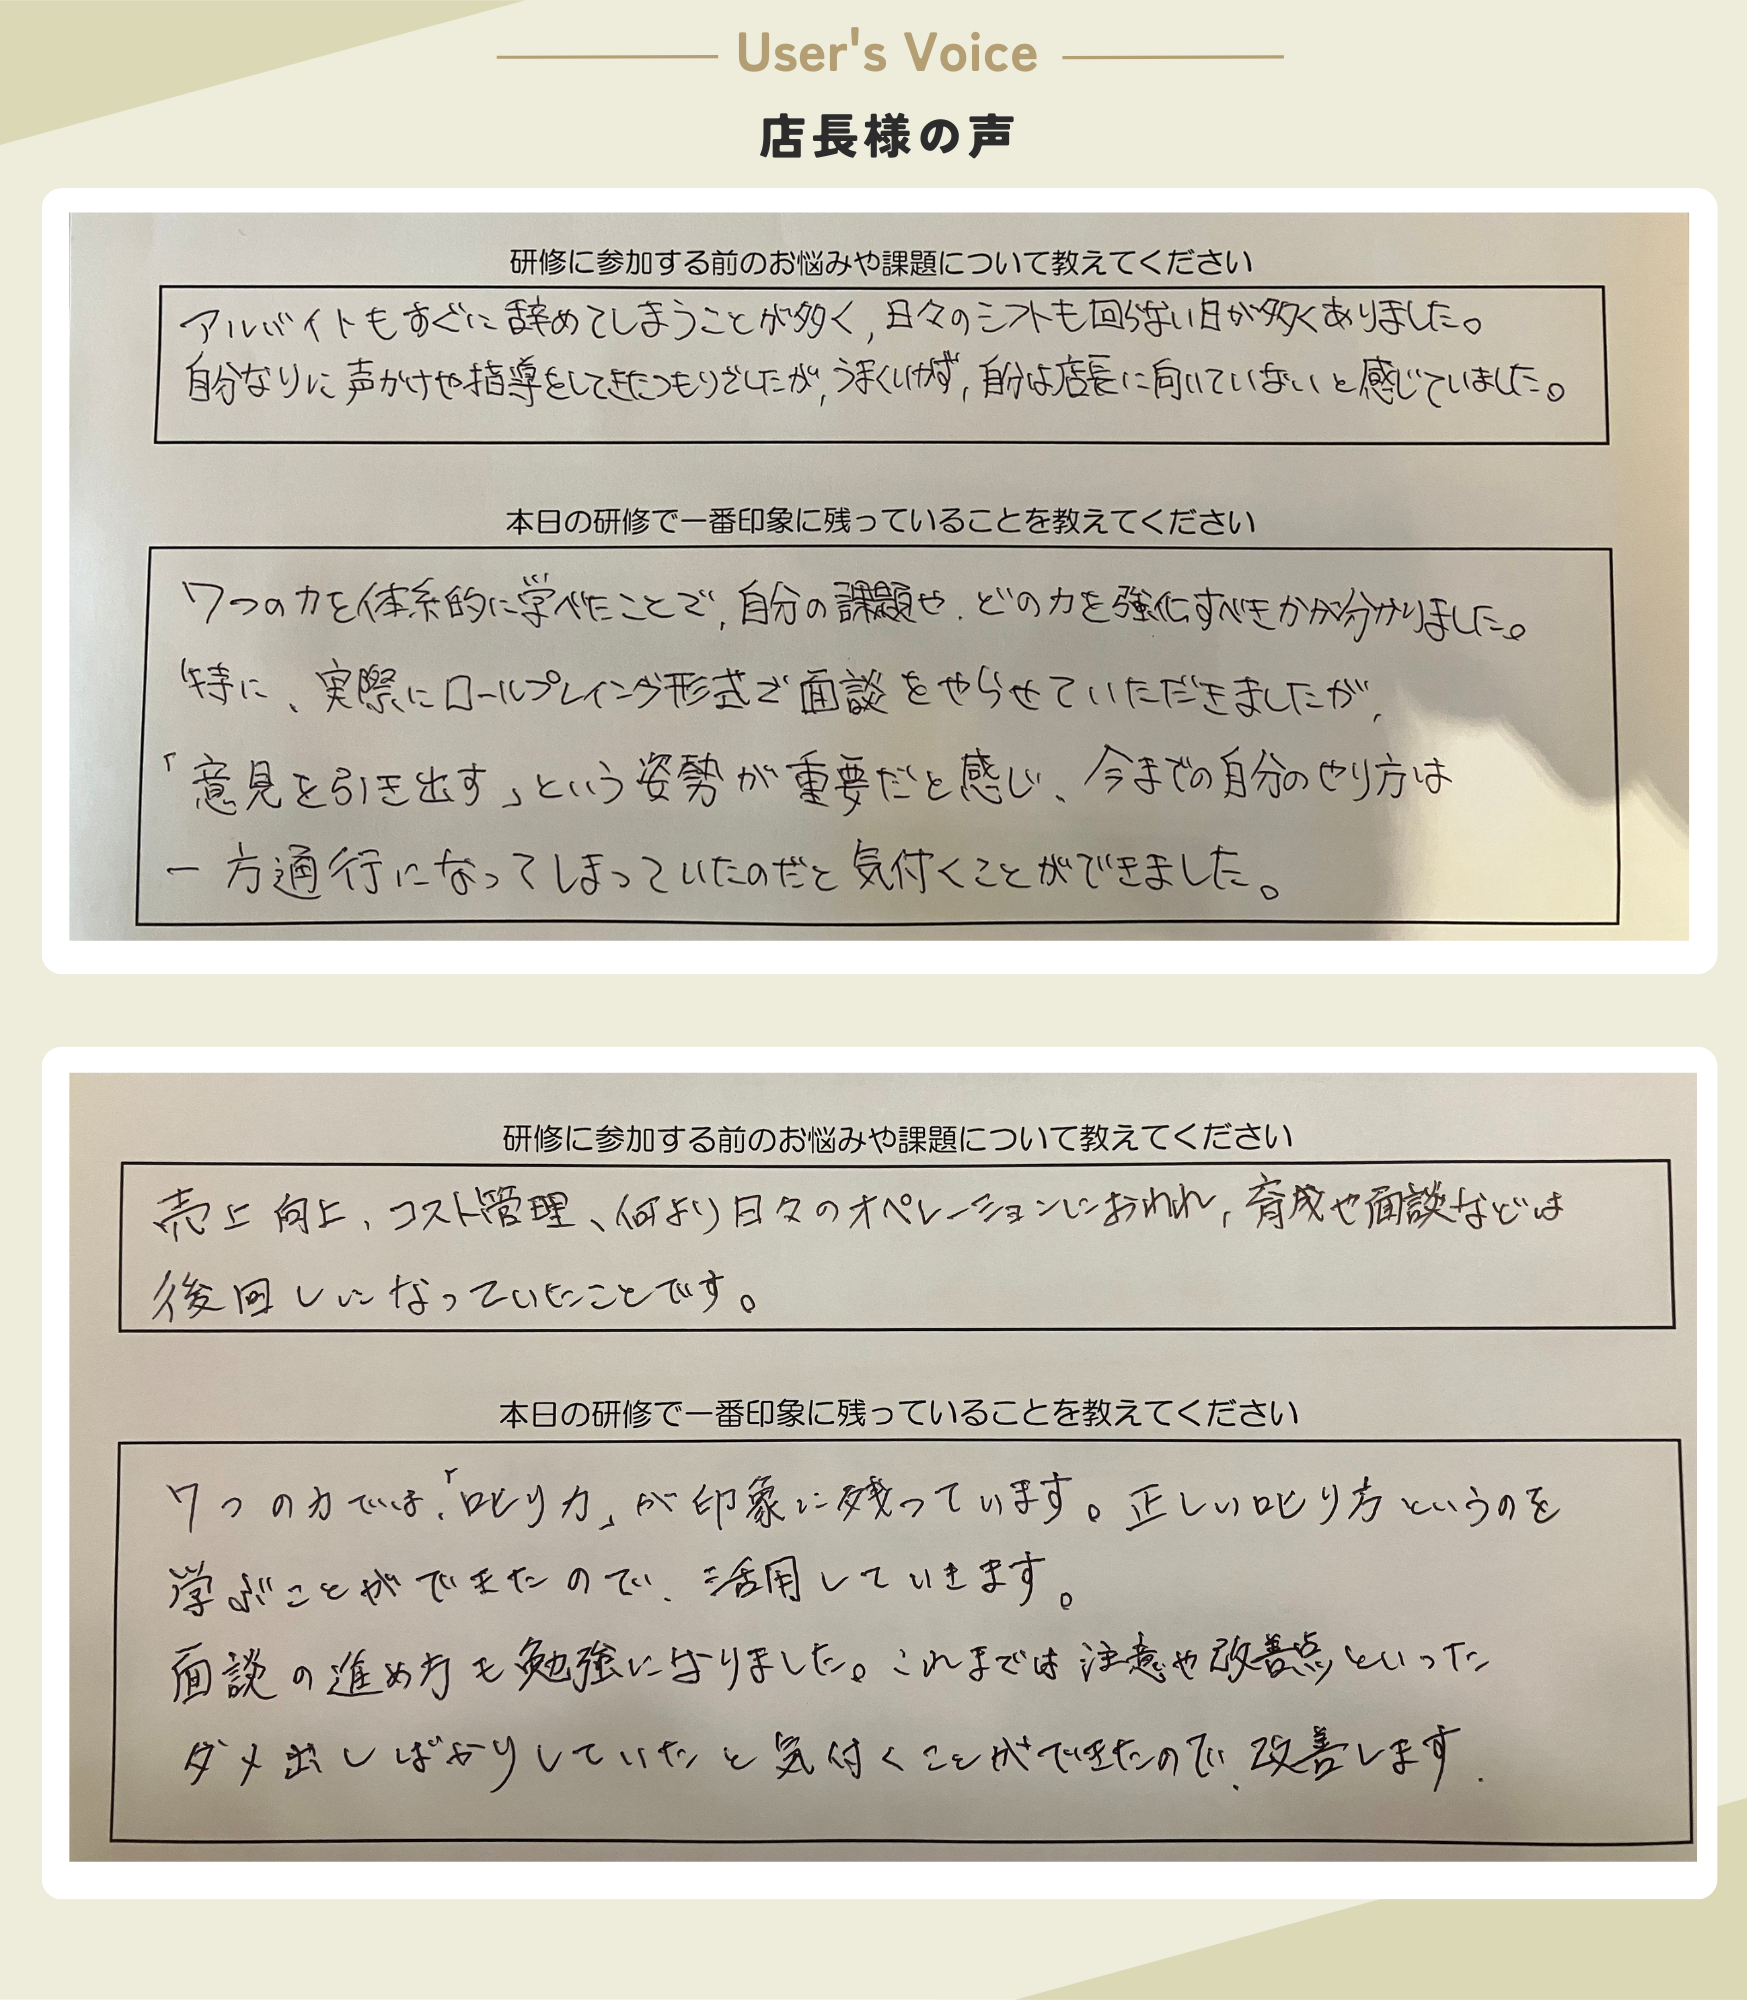 User's Voice
店長様の声
研修に参加する前のお悩みや課題について教えてください
アルバイトもすぐに辞めてしまうことが多く,日々のシフトも回らない日が多くありました。
自分なりに声かけや指導をしてきたつもりでしたが,うまくいかず,自分は店長に向いていないと感じていました。
本日の研修で一番印象に残っていることを教えてください
7つの力を体系的に学べたことで,自分の課題や、どの力を強化すべきかが分かりました。
特に、実際にロールプレイング形式で面談をやらせていただきましたが,
「意見を引き出す」という姿勢が重要だと感じ、今までの自分のやり方は
一方通行になってしまっていたのだと気付くことができました。
研修に参加する前のお悩みや課題について教えてください
売上向上、コスト管理、何より日々のオペレーションにおわれ,育成や面談などは
後回しになっていたことです。
本日の研修で一番印象に残っていることを教えてください
7つの力では、「叱り力」が印象に残っています。正しい叱り方というのを
学ぶことができたので、活用していきます。
面談の進め方も勉強になりました。これまでは注意や改善点といった
ダメ出しばかりしていたと気付くことができたので、改善します.